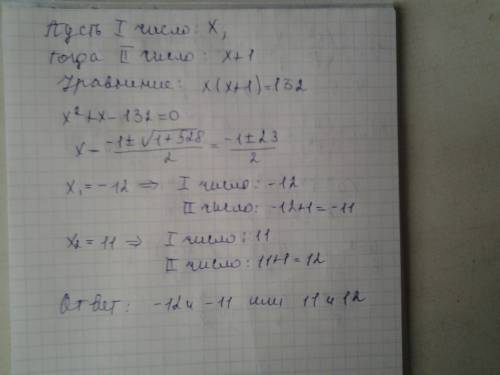 Пусть I число: x,
тогда II число: x+1
Уравнение: x(x+1)=132
x²+x-132=0
x-\frac{-1±√1+528}{2}=\frac{-1±23}{2}
x₁=-12 ⇒ I число: -12
II число: -12+1=-11
x₂=11 ⇒ I число: 11
II число: 11+1=12
Ответ: -12и -11 или 11 и 12